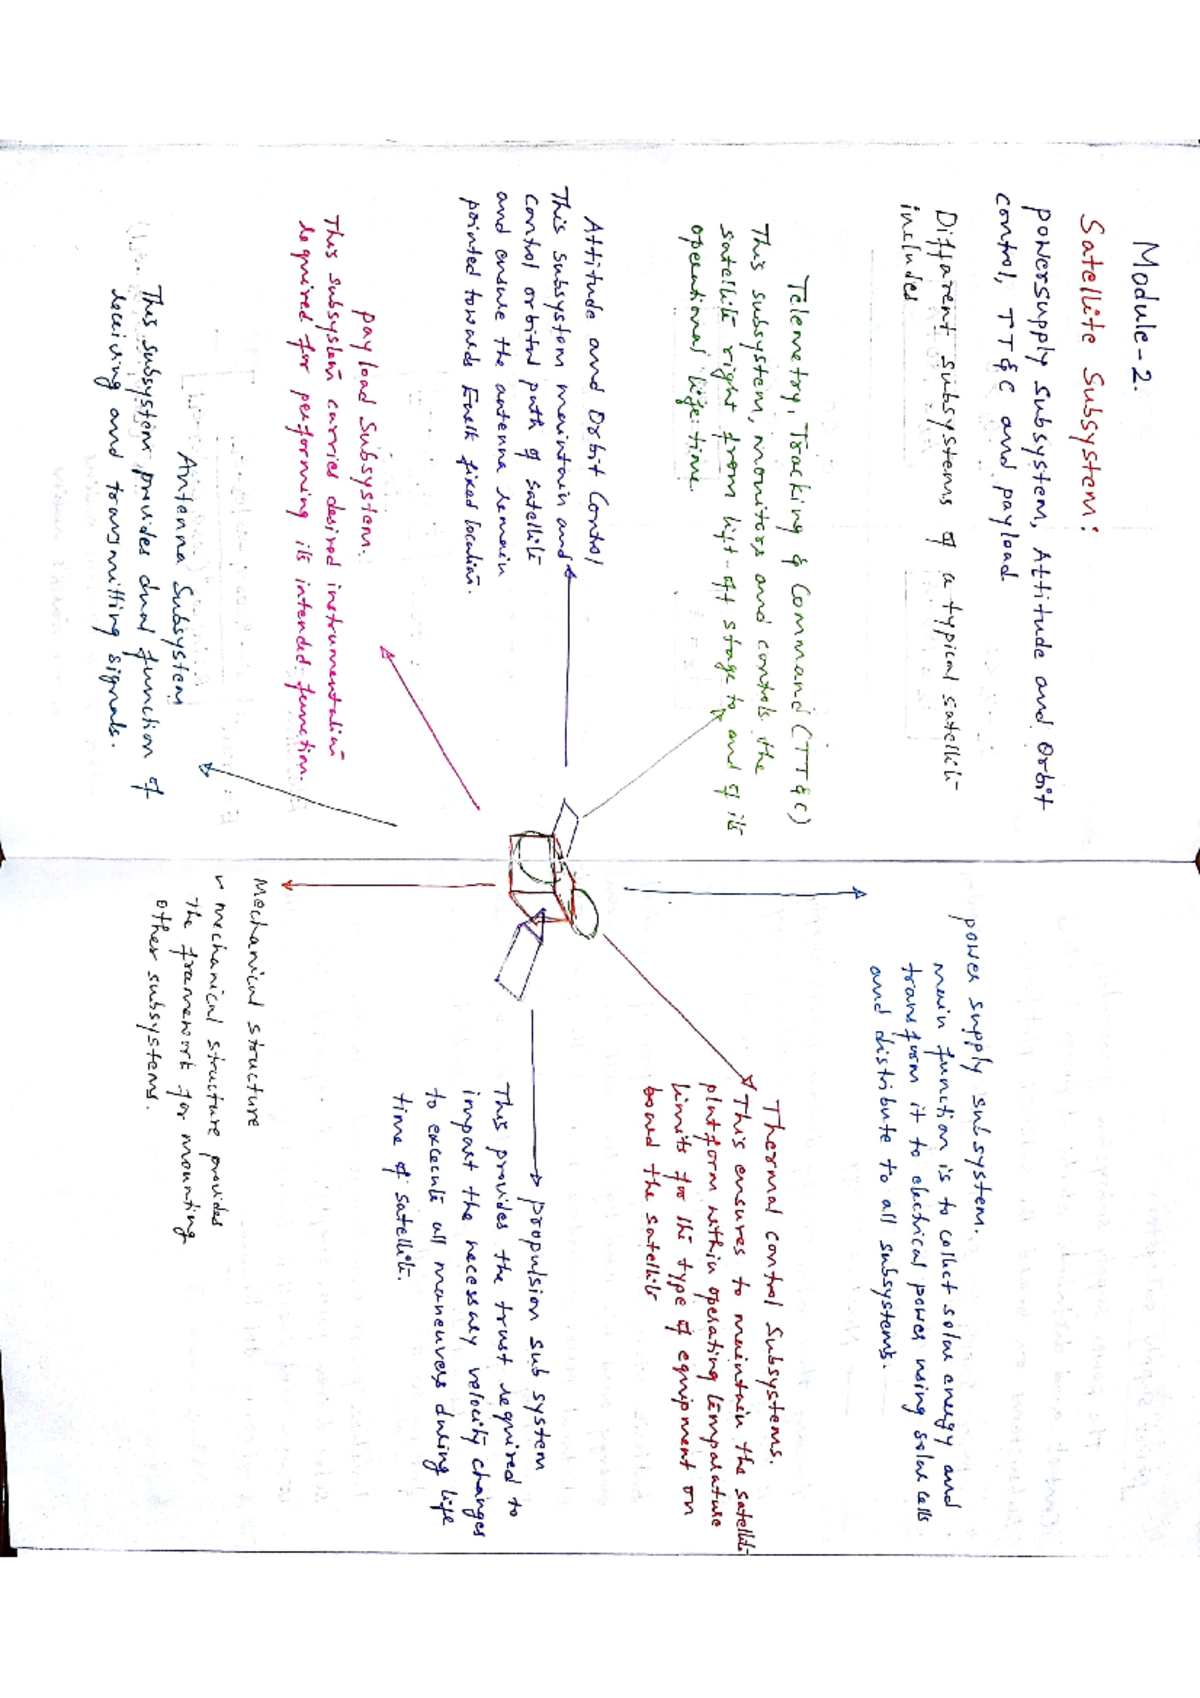 Module-2.
Satellite Subsystem:
powersupply subsystem, Attitude and Orbit
control, TT&C and payload
Diffarent subsystems of a typical satellite
includes
Telemetry, Tracking & Command (TT&C)
This subsystem, monitors and controls the
satellite right from lift-off stage to end of its
operational life time.
Attitude and Orbit Control
This subsystem maintain and
control orbital path of satellite
and ensure the antenna remain
pointed towards Earth fixed location.
payload Subsystem.
This subsystem carries desired instrumentation
required for performing its intended function.
Antenna Subsystem
This subsystem provides dual function of
receiving and transmitting signals.
power supply subsystem.
main function is to collect solar energy and
transform it to electrical power using solar cells
and distribute to all subsystems.
Thermal control Subsystems.
This ensures to maintain the satellite
platform within operating temparature
limits for the type of equipment on
board the satellite
propulsion sub system
This provides the trust required to
impart the necessary velocity changes
to execute all maneuvers during life
time of satellite.
Mechanical structure
mechanical structure provides
the framework for mounting
other subsystems.